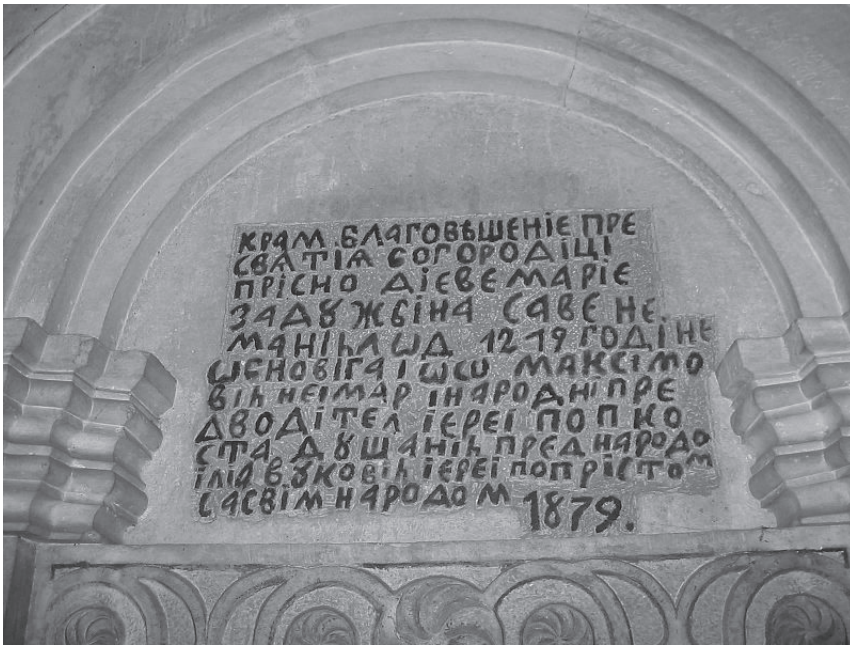 КРАМ. БЛАГОВѢШЕНІЕ ПРЕ
СВАТІꙖ БОГОРОДІЦІ
ПРІСНО ДІЕВЕ МАРІЕ
ЗАДꙊЖБІНА САВЕ НЕ.
МАНІЋА ѠД 1219 ГОДІНЕ
ѠСНОВІГА ІѠСО МАКСІМО
ВІЋ НЕІМАР ІНАРОДНІ ПРЕ
ДВОДІТЕЛ ІЕРЕІ ПОП КО
СТА ДꙊШАНІЋ ПРЕДНАРОДО
ІЛІА ВꙊКОВІЋ ІЕРЕІ ПОП РІСТОМ
САСВІМ НАРОДОМ 1879.